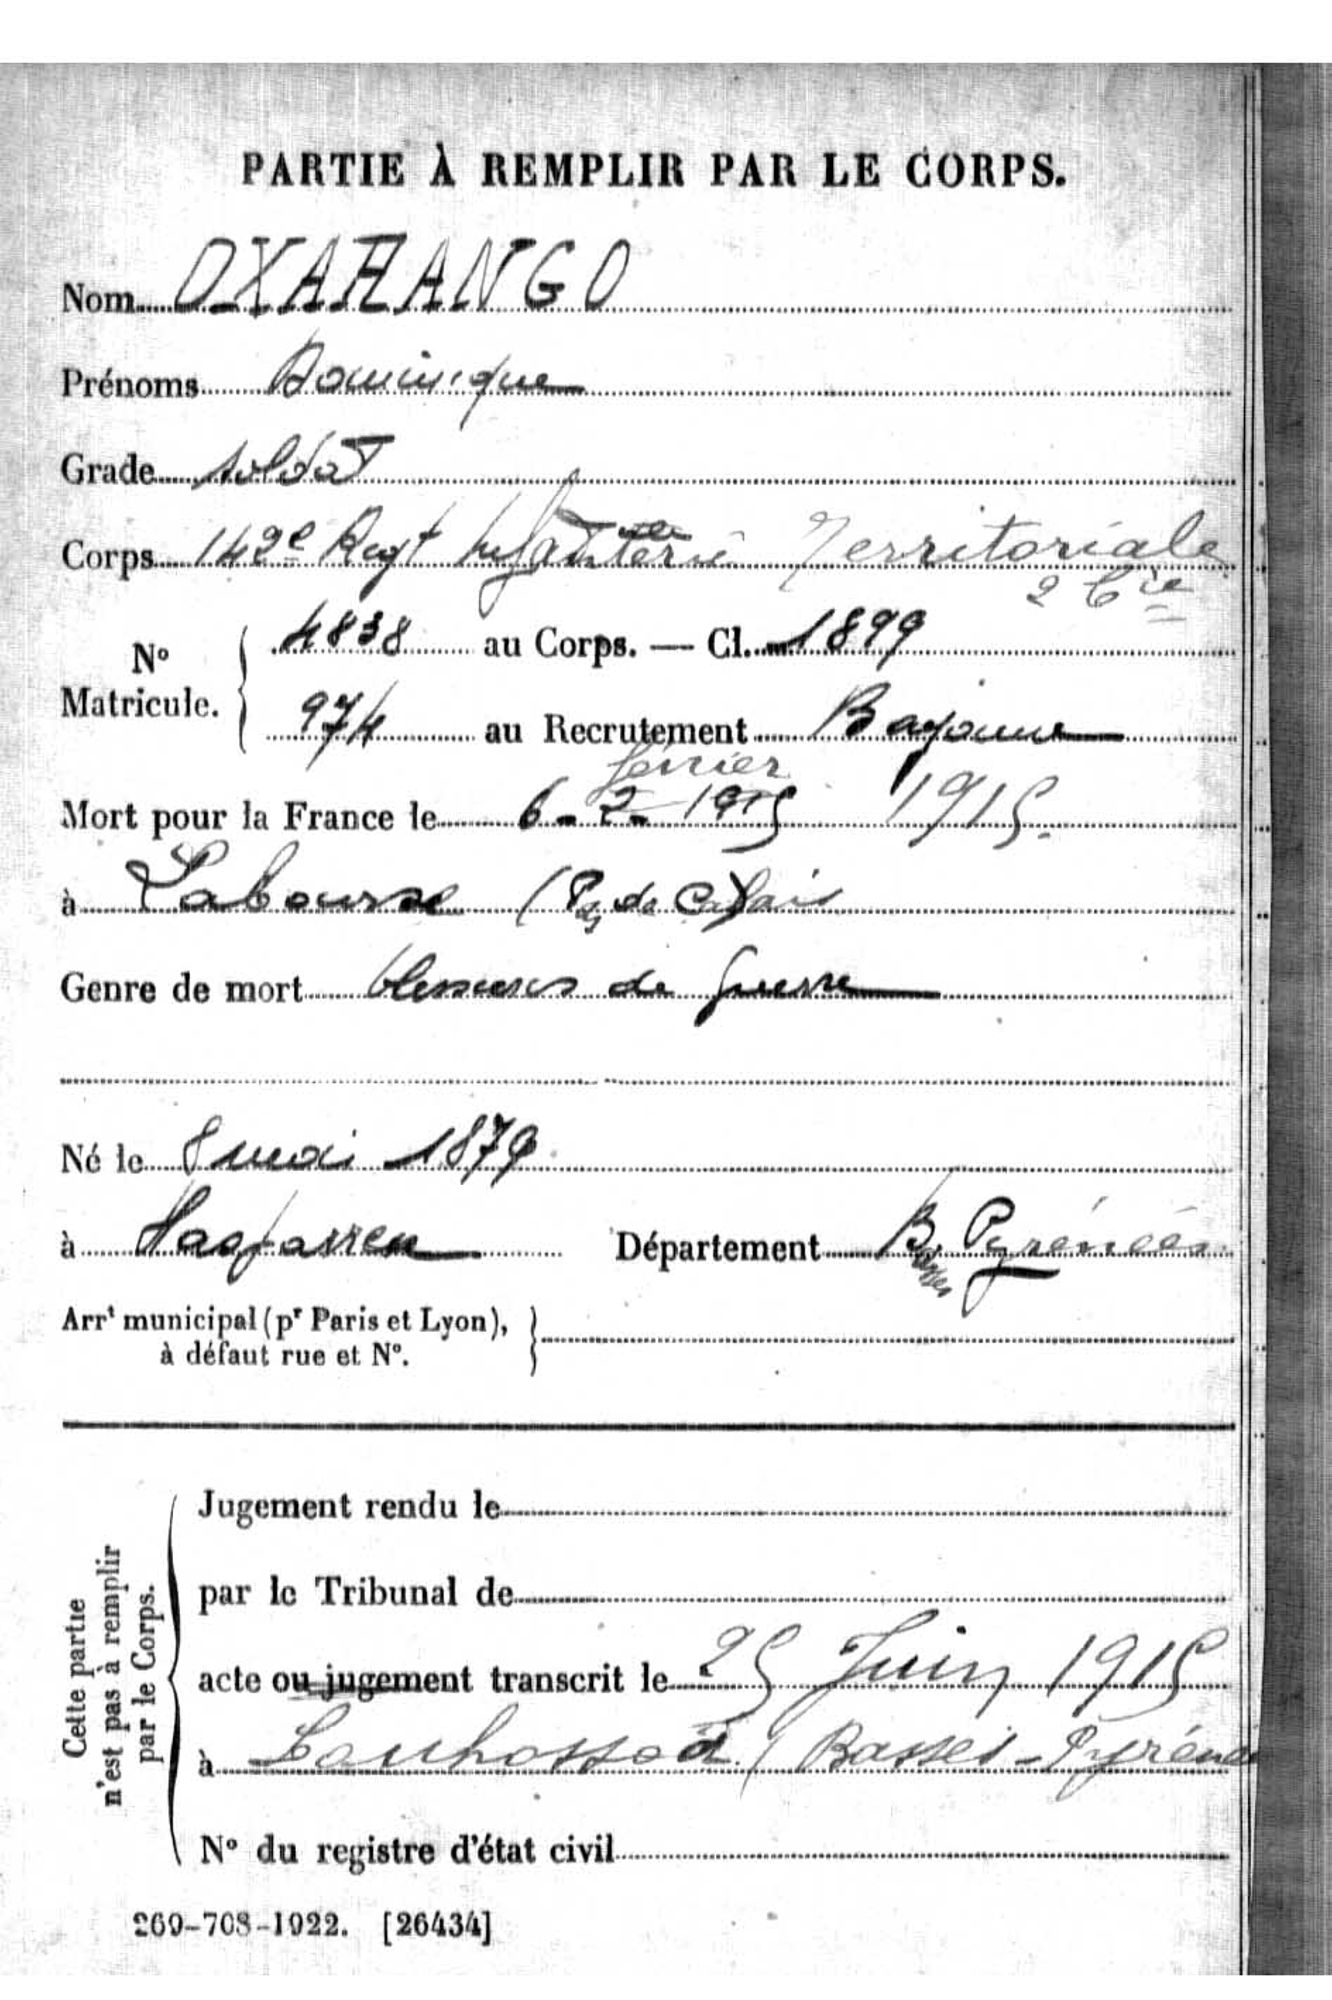 PARTIE À REMPLIR PAR LE CORPS.
Nom OXARANGO
Prénoms Dominique
Grade soldat
Corps 142e Regt Infanterie Territoriale
2 Cie
N° Matricule. 4838 au Corps. — Cl. 1899
974 au Recrutement Bayonne
février
Mort pour la France le 6-2-1915 1915.
à Labourse (Pas de Calais
Genre de mort blessures de guerre
Né le 8 mai 1879
à Hasparren Département Basses Pyrénées
Arrt municipal (pr Paris et Lyon),
à défaut rue et N°.
Cette partie
n'est pas à remplir
par le Corps.
Jugement rendu le
par le Tribunal de
acte ou jugement transcrit le 25 Juin 1915
à Louhossoa (Basses-Pyrénées
N° du registre d'état civil
269-708-1922. [26434]